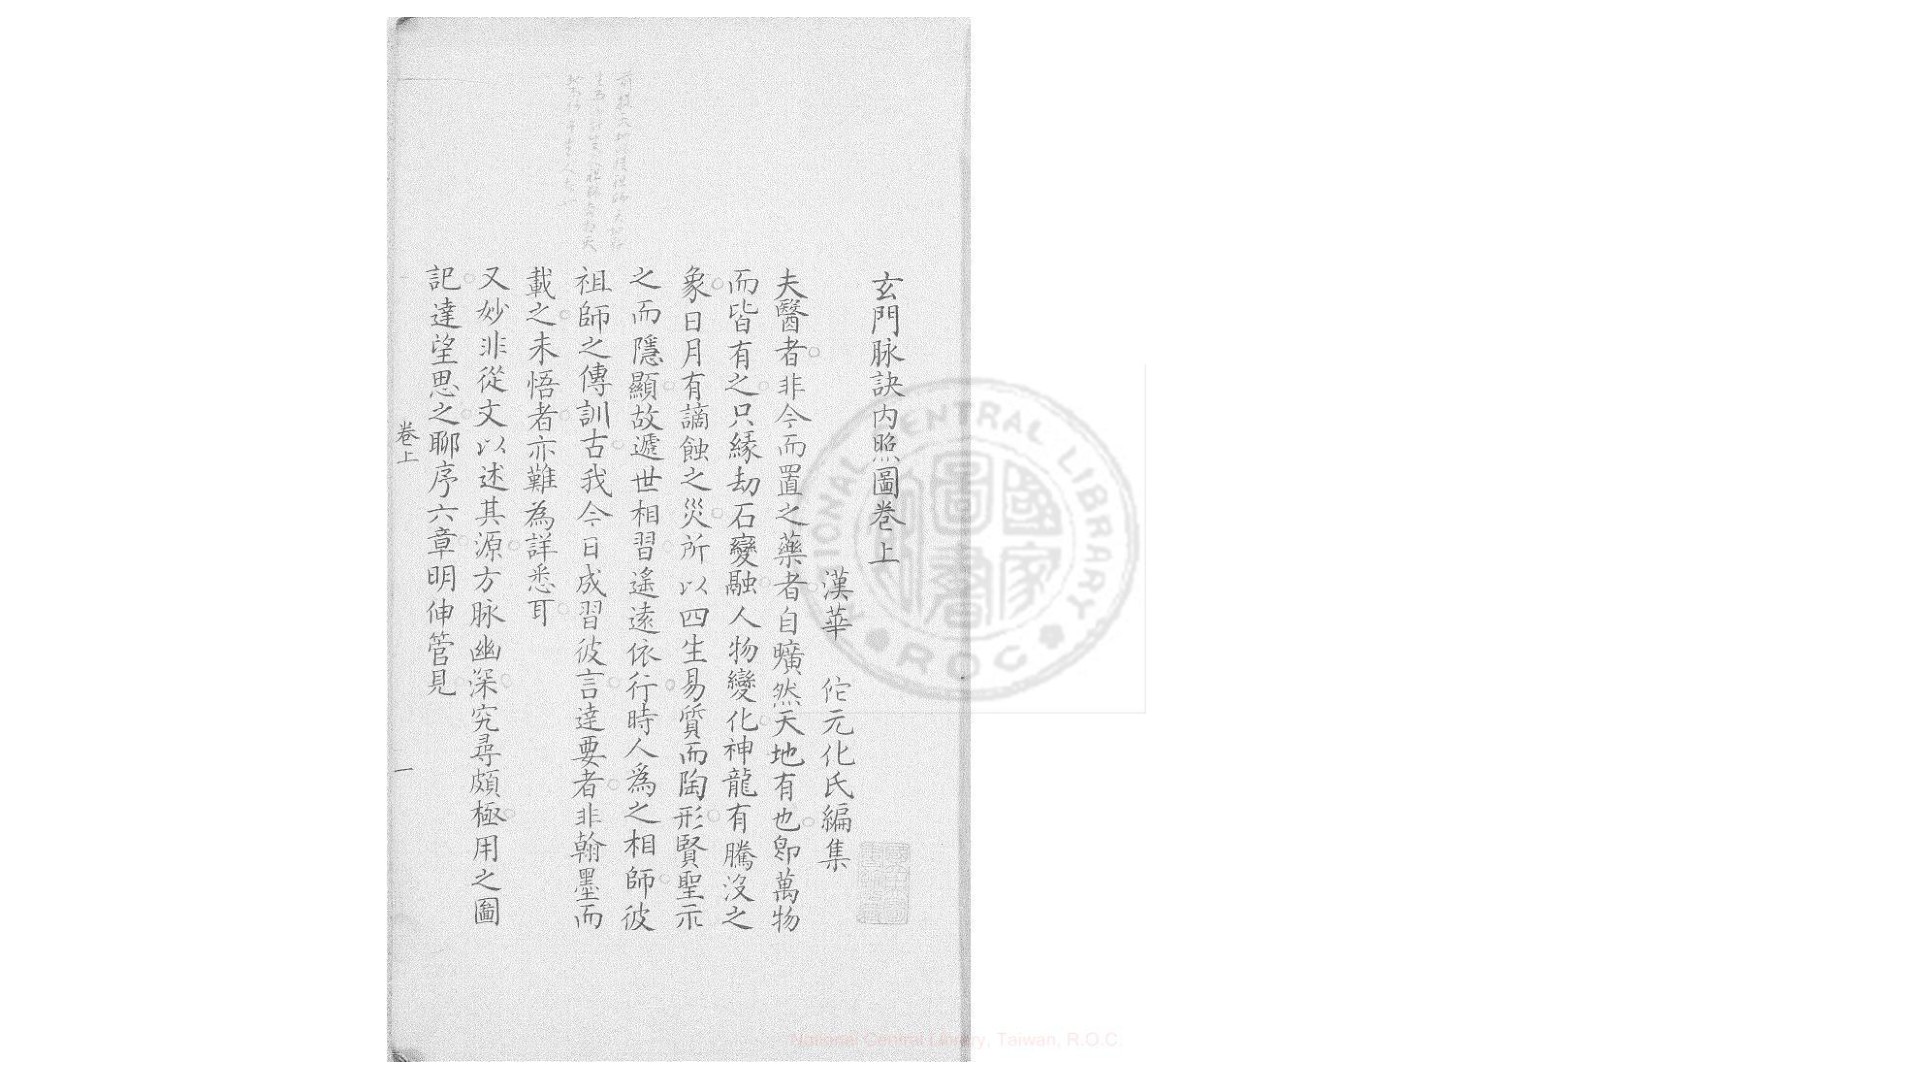 玄門脉訣内照圖卷上
漢華 佗元化氏編集
夫醫者非今而置之藥者自曠然天地有也卽萬物
而皆有之只緣劫石變融人物變化神龍有騰沒之
象日月有謫蝕之災所以四生易質而陶形賢聖示
之而隱顯故遞世相習遙遠依行時人爲之相師彼
祖師之傳訓古我今日成習彼言達要者非翰墨而
載之未悟者亦難為詳悉耳
又妙非從文以述其源方脉幽深究尋頗極用之圖
記達望思之聊序六章明伸管見
卷上
一
NATIONAL CENTRAL LIBRARY
ROC
國家圖書
National Central Library, Taiwan, R.O.C.